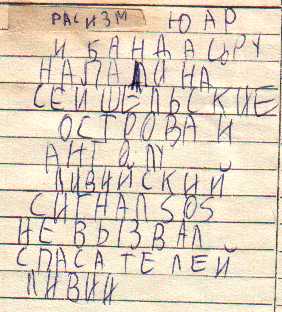 РАСИЗМ ЮАР
И БАНДА ЦРУ
НАПАЛИ НА
СЕЙШЕЛЬСКИЕ
ОСТРОВА И
АНГОЛУ
ЛИВИЙСКИЙ
СИГНАЛ SOS
НЕ ВЫЗВАЛ
СПАСАТЕЛЕЙ
ЛИВИИ